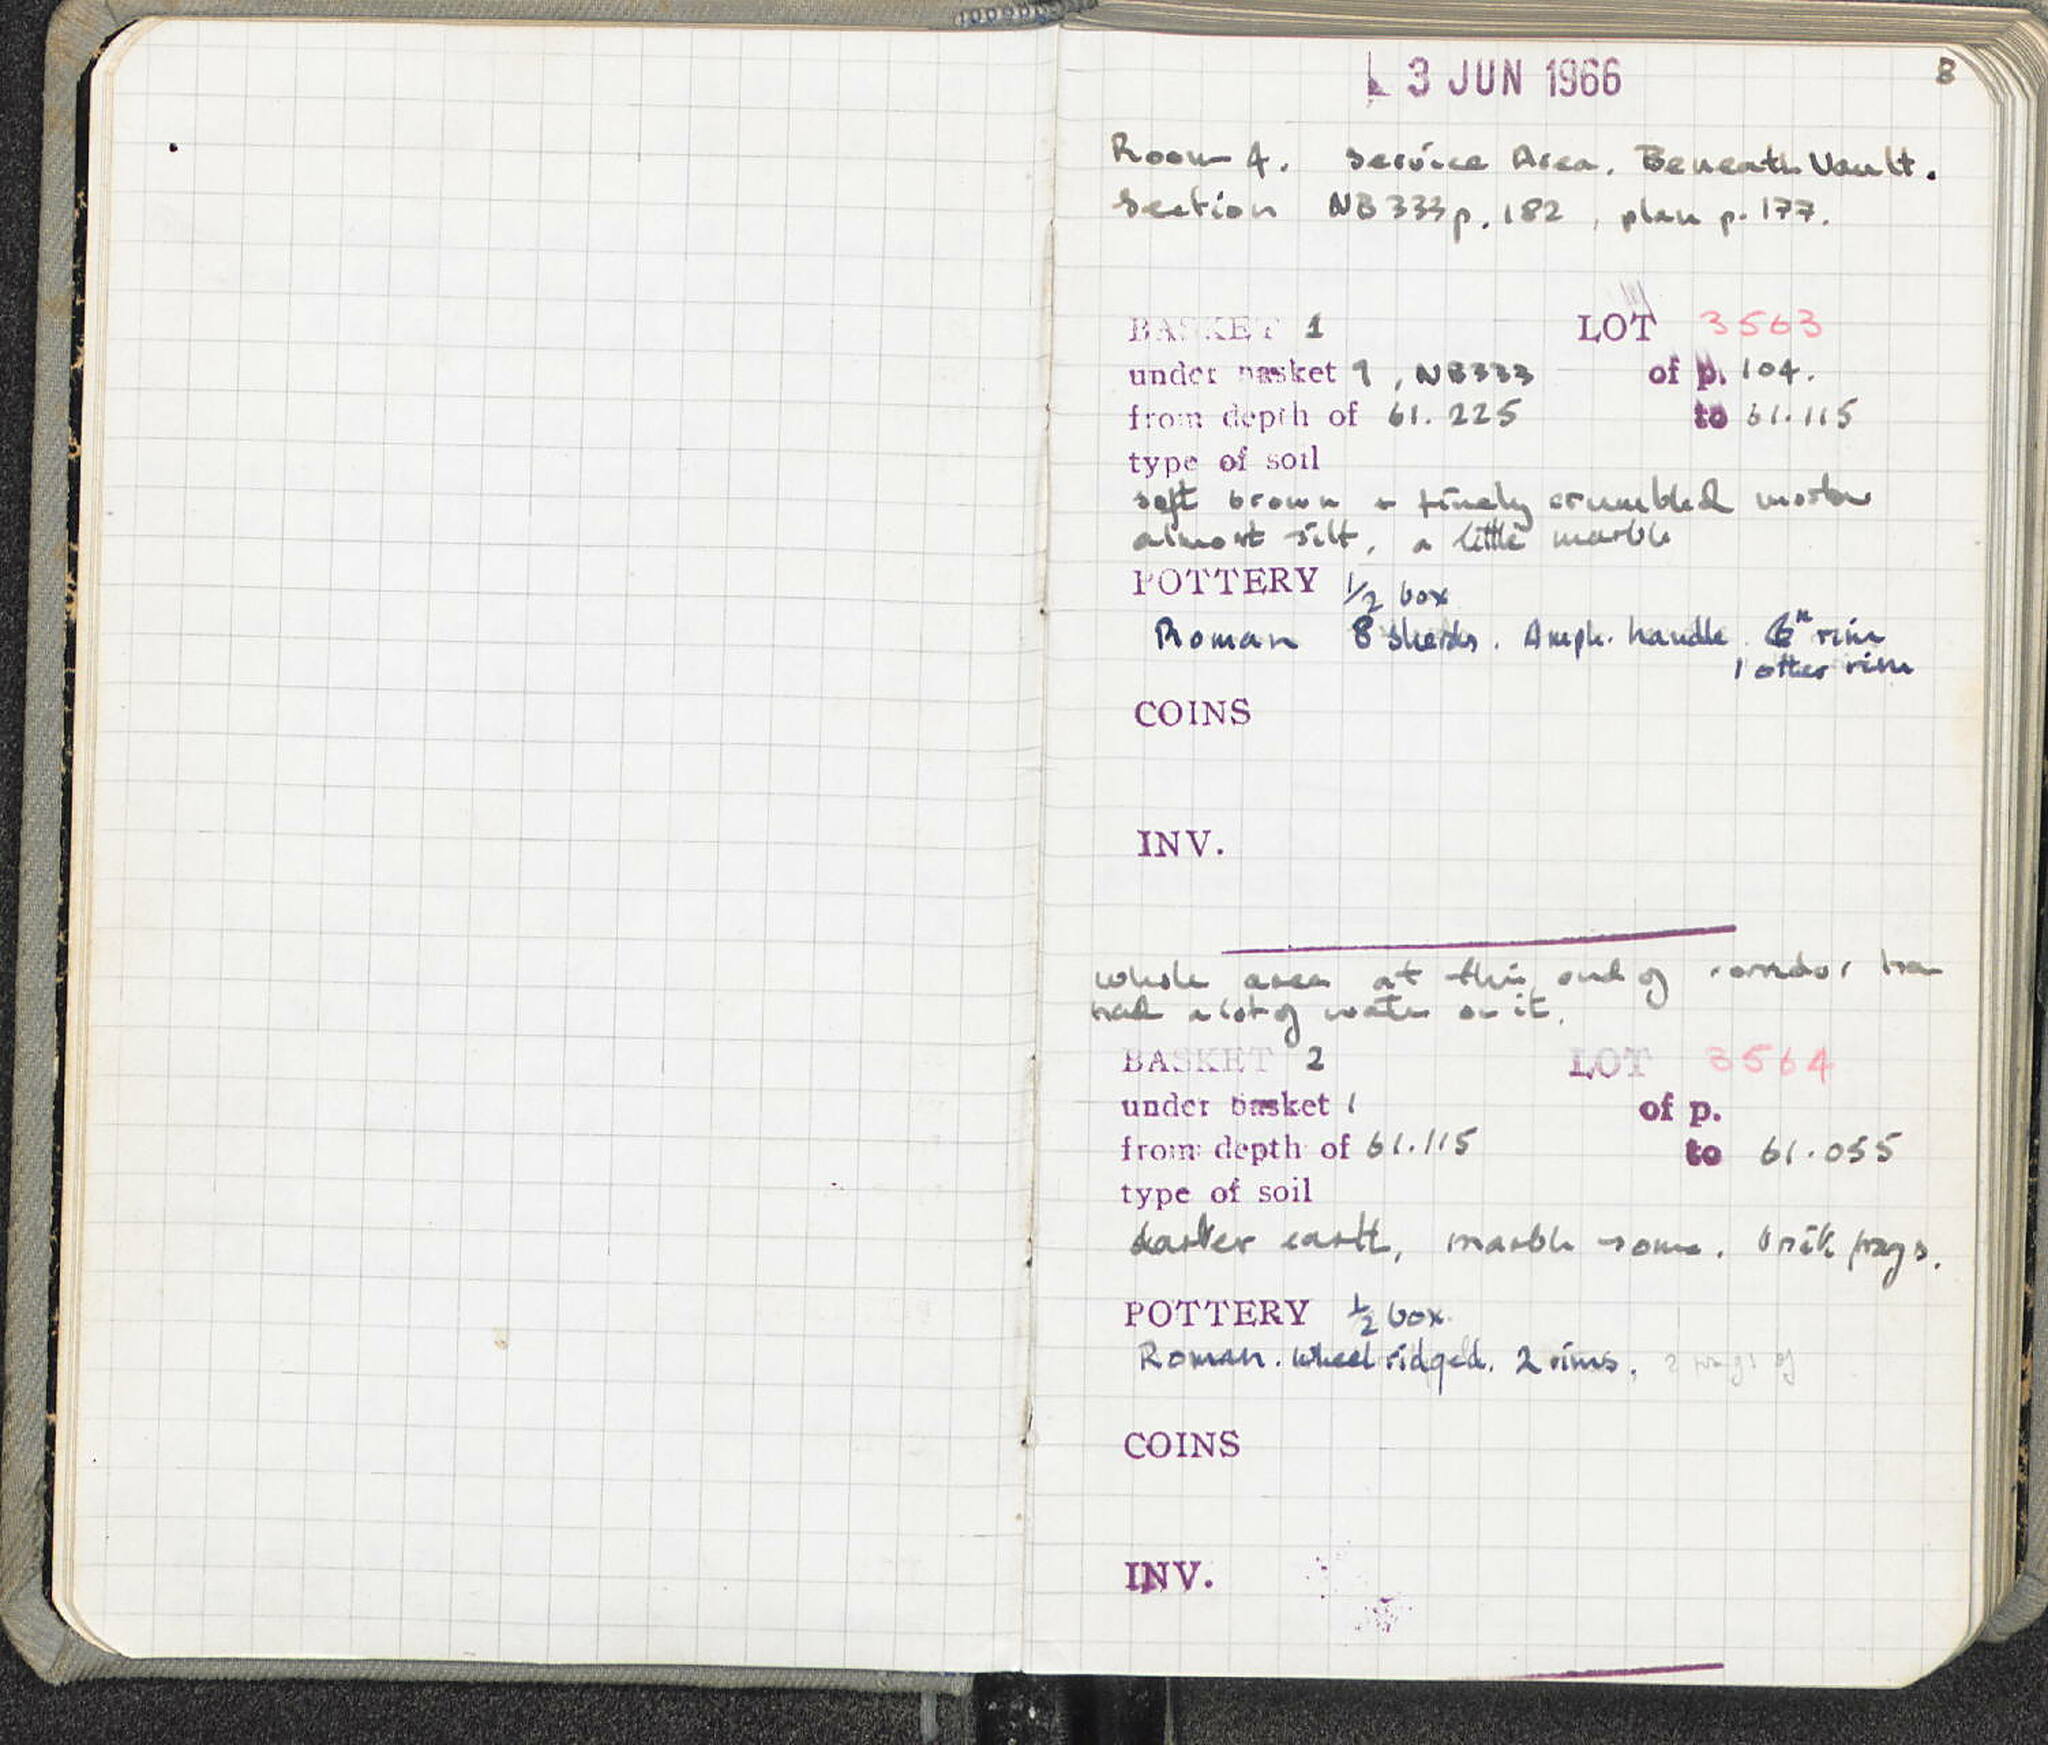 3 JUN 1966
8
Room 4. Service Area. Beneath Vault.
Section NB 333 p. 182, plan p. 177.
BASKET 1 LOT 3563
under basket 9, NB333 of p. 104.
from depth of 61.225 to 61.115
type of soil
soft brown + finely crumbled mortar
almost silt, a little marble
POTTERY 1/2 box
Roman 8 sherds. Amph. handle. rim
1 other rim
COINS
INV.
whole area at this end of corridor has
had a lot of water on it.
BASKET 2 LOT 3564
under basket 1 of p.
from depth of 61.115 to 61.055
type of soil
darker earth, marble some. brik frags.
POTTERY 1/2 box
Roman. wheel ridged. 2 rims.
COINS
INV.